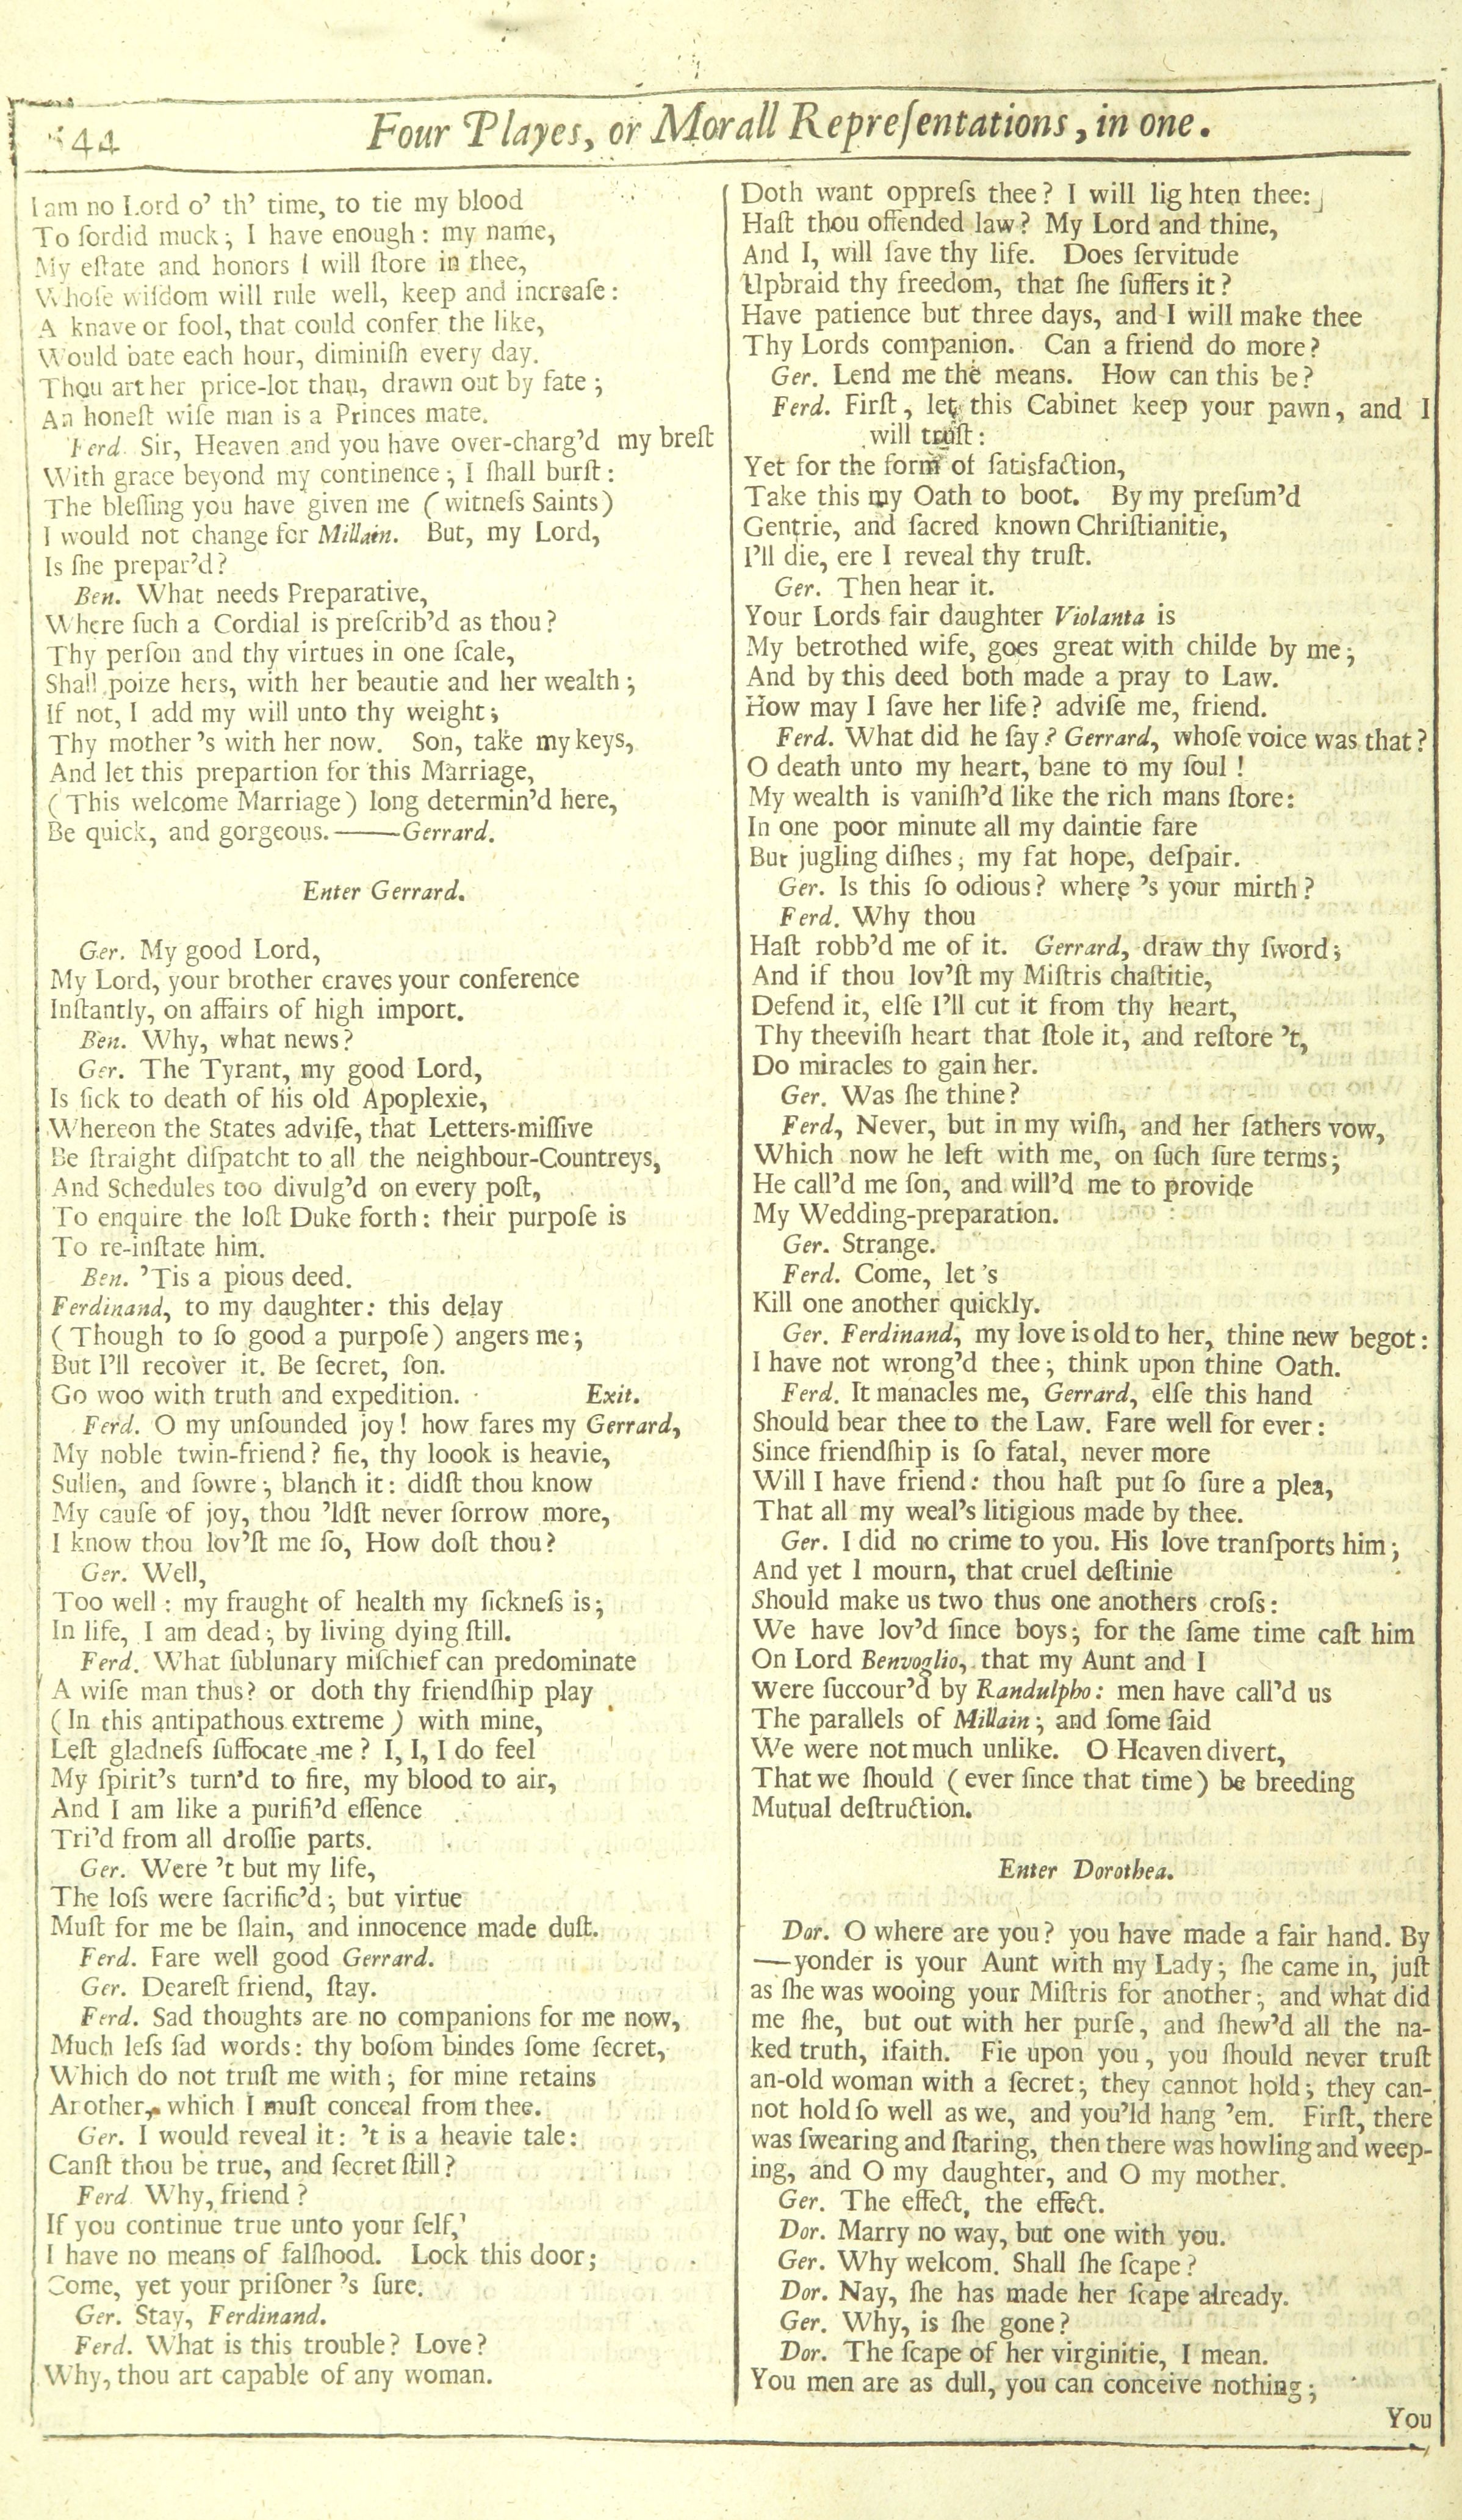 44
Four Playes, or Morall Repreſentations, in one.
I am no Lord o' th' time, to tie my blood
To ſordid muck; I have enough: my name,
My eſtate and honors I will ſtore in thee,
Whoſe wiſdom will rule well, keep and increaſe:
A knave or fool, that could confer the like,
Would bate each hour, diminiſh every day.
Thou art her price-lot than, drawn out by fate;
An honeſt wiſe man is a Princes mate.
Ferd. Sir, Heaven and you have over-charg'd my breſt
With grace beyond my continence; I ſhall burſt:
The bleſſing you have given me (witneſs Saints)
I would not change for Millain. But, my Lord,
Is ſhe prepar'd?
Ben. What needs Preparative,
Where ſuch a Cordial is preſcrib'd as thou?
Thy perſon and thy virtues in one ſcale,
Shall poize hers, with her beautie and her wealth;
If not, I add my will unto thy weight;
Thy mother 's with her now. Son, take my keys,
And let this prepartion for this Marriage,
(This welcome Marriage) long determin'd here,
Be quick, and gorgeous.——Gerrard.
Enter Gerrard.
Ger. My good Lord,
My Lord, your brother craves your conference
Inſtantly, on affairs of high import.
Ben. Why, what news?
Ger. The Tyrant, my good Lord,
Is ſick to death of his old Apoplexie,
Whereon the States adviſe, that Letters-miſſive
Be ſtraight diſpatcht to all the neighbour-Countreys,
And Schedules too divulg'd on every poſt,
To enquire the loſt Duke forth: their purpoſe is
To re-inſtate him.
Ben. 'Tis a pious deed.
Ferdinand, to my daughter: this delay
(Though to ſo good a purpoſe) angers me;
But I'll recover it. Be ſecret, ſon.
Go woo with truth and expedition. Exit.
Ferd. O my unſounded joy! how fares my Gerrard,
My noble twin-friend? fie, thy loook is heavie,
Sullen, and ſowre; blanch it: didſt thou know
My cauſe of joy, thou 'ldſt never ſorrow more,
I know thou lov'ſt me ſo, How doſt thou?
Ger. Well,
Too well: my fraught of health my ſickneſs is;
In life, I am dead; by living dying ſtill.
Ferd. What ſublunary miſchief can predominate
A wiſe man thus? or doth thy friendſhip play
(In this antipathous extreme) with mine,
Leſt gladneſs ſuffocate me? I, I, I do feel
My ſpirit's turn'd to fire, my blood to air,
And I am like a purifi'd eſſence
Tri'd from all droſſie parts.
Ger. Were 't but my life,
The loſs were ſacrific'd; but virtue
Muſt for me be ſlain, and innocence made duſt.
Ferd. Fare well good Gerrard.
Ger. Deareſt friend, ſtay.
Ferd. Sad thoughts are no companions for me now,
Much leſs ſad words: thy boſom bindes ſome ſecret,
Which do not truſt me with; for mine retains
Another, which I muſt conceal from thee.
Ger. I would reveal it: 't is a heavie tale:
Canſt thou be true, and ſecret ſtill?
Ferd Why, friend?
If you continue true unto your ſelf,
I have no means of falſhood. Lock this door;
Come, yet your priſoner 's ſure.
Ger. Stay, Ferdinand.
Ferd. What is this trouble? Love?
Why, thou art capable of any woman.
Doth want oppreſs thee? I will lig hten thee:
Haſt thou offended law? My Lord and thine,
And I, will ſave thy life. Does ſervitude
Upbraid thy freedom, that ſhe ſuffers it?
Have patience but three days, and I will make thee
Thy Lords companion. Can a friend do more?
Ger. Lend me the means. How can this be?
Ferd. Firſt, let this Cabinet keep your pawn, and I
will truſt:
Yet for the form of ſatisfaction,
Take this my Oath to boot. By my preſum'd
Gentrie, and ſacred known Chriſtianitie,
I'll die, ere I reveal thy truſt.
Ger. Then hear it.
Your Lords fair daughter Violanta is
My betrothed wife, goes great with childe by me;
And by this deed both made a pray to Law.
How may I ſave her life? adviſe me, friend.
Ferd. What did he ſay? Gerrard, whoſe voice was that?
O death unto my heart, bane to my ſoul!
My wealth is vaniſh'd like the rich mans ſtore:
In one poor minute all my daintie fare
But jugling diſhes; my fat hope, deſpair.
Ger. Is this ſo odious? where 's your mirth?
Ferd. Why thou
Haſt robb'd me of it. Gerrard, draw thy ſword;
And if thou lov'ſt my Miſtris chaſtitie,
Defend it, elſe I'll cut it from thy heart,
Thy theeviſh heart that ſtole it, and reſtore 't,
Do miracles to gain her.
Ger. Was ſhe thine?
Ferd, Never, but in my wiſh, and her fathers vow,
Which now he left with me, on ſuch ſure terms;
He call'd me ſon, and will'd me to provide
My Wedding-preparation.
Ger. Strange.
Ferd. Come, let 's
Kill one another quickly.
Ger. Ferdinand, my love is old to her, thine new begot:
I have not wrong'd thee; think upon thine Oath.
Ferd. It manacles me, Gerrard, elſe this hand
Should bear thee to the Law. Fare well for ever:
Since friendſhip is ſo fatal, never more
Will I have friend: thou haſt put ſo ſure a plea,
That all my weal's litigious made by thee.
Ger. I did no crime to you. His love tranſports him;
And yet I mourn, that cruel deſtinie
Should make us two thus one anothers croſs:
We have lov'd ſince boys; for the ſame time caſt him
On Lord Benvoglio, that my Aunt and I
Were ſuccour'd by Randulpho: men have call'd us
The parallels of Millain; and ſome ſaid
We were not much unlike. O Heaven divert,
That we ſhould (ever ſince that time) be breeding
Mutual deſtruction.
Enter Dorothea.
Dor. O where are you? you have made a fair hand. By
—yonder is your Aunt with my Lady; ſhe came in, juſt
as ſhe was wooing your Miſtris for another; and what did
me ſhe, but out with her purſe, and ſhew'd all the na-
ked truth, ifaith. Fie upon you, you ſhould never truſt
an-old woman with a ſecret; they cannot hold; they can-
not hold ſo well as we, and you'ld hang 'em. Firſt, there
was ſwearing and ſtaring, then there was howling and weep-
ing, and O my daughter, and O my mother.
Ger. The effect, the effect.
Dor. Marry no way, but one with you.
Ger. Why welcom. Shall ſhe ſcape?
Dor. Nay, ſhe has made her ſcape already.
Ger. Why, is ſhe gone?
Dor. The ſcape of her virginitie, I mean.
You men are as dull, you can conceive nothing;
You